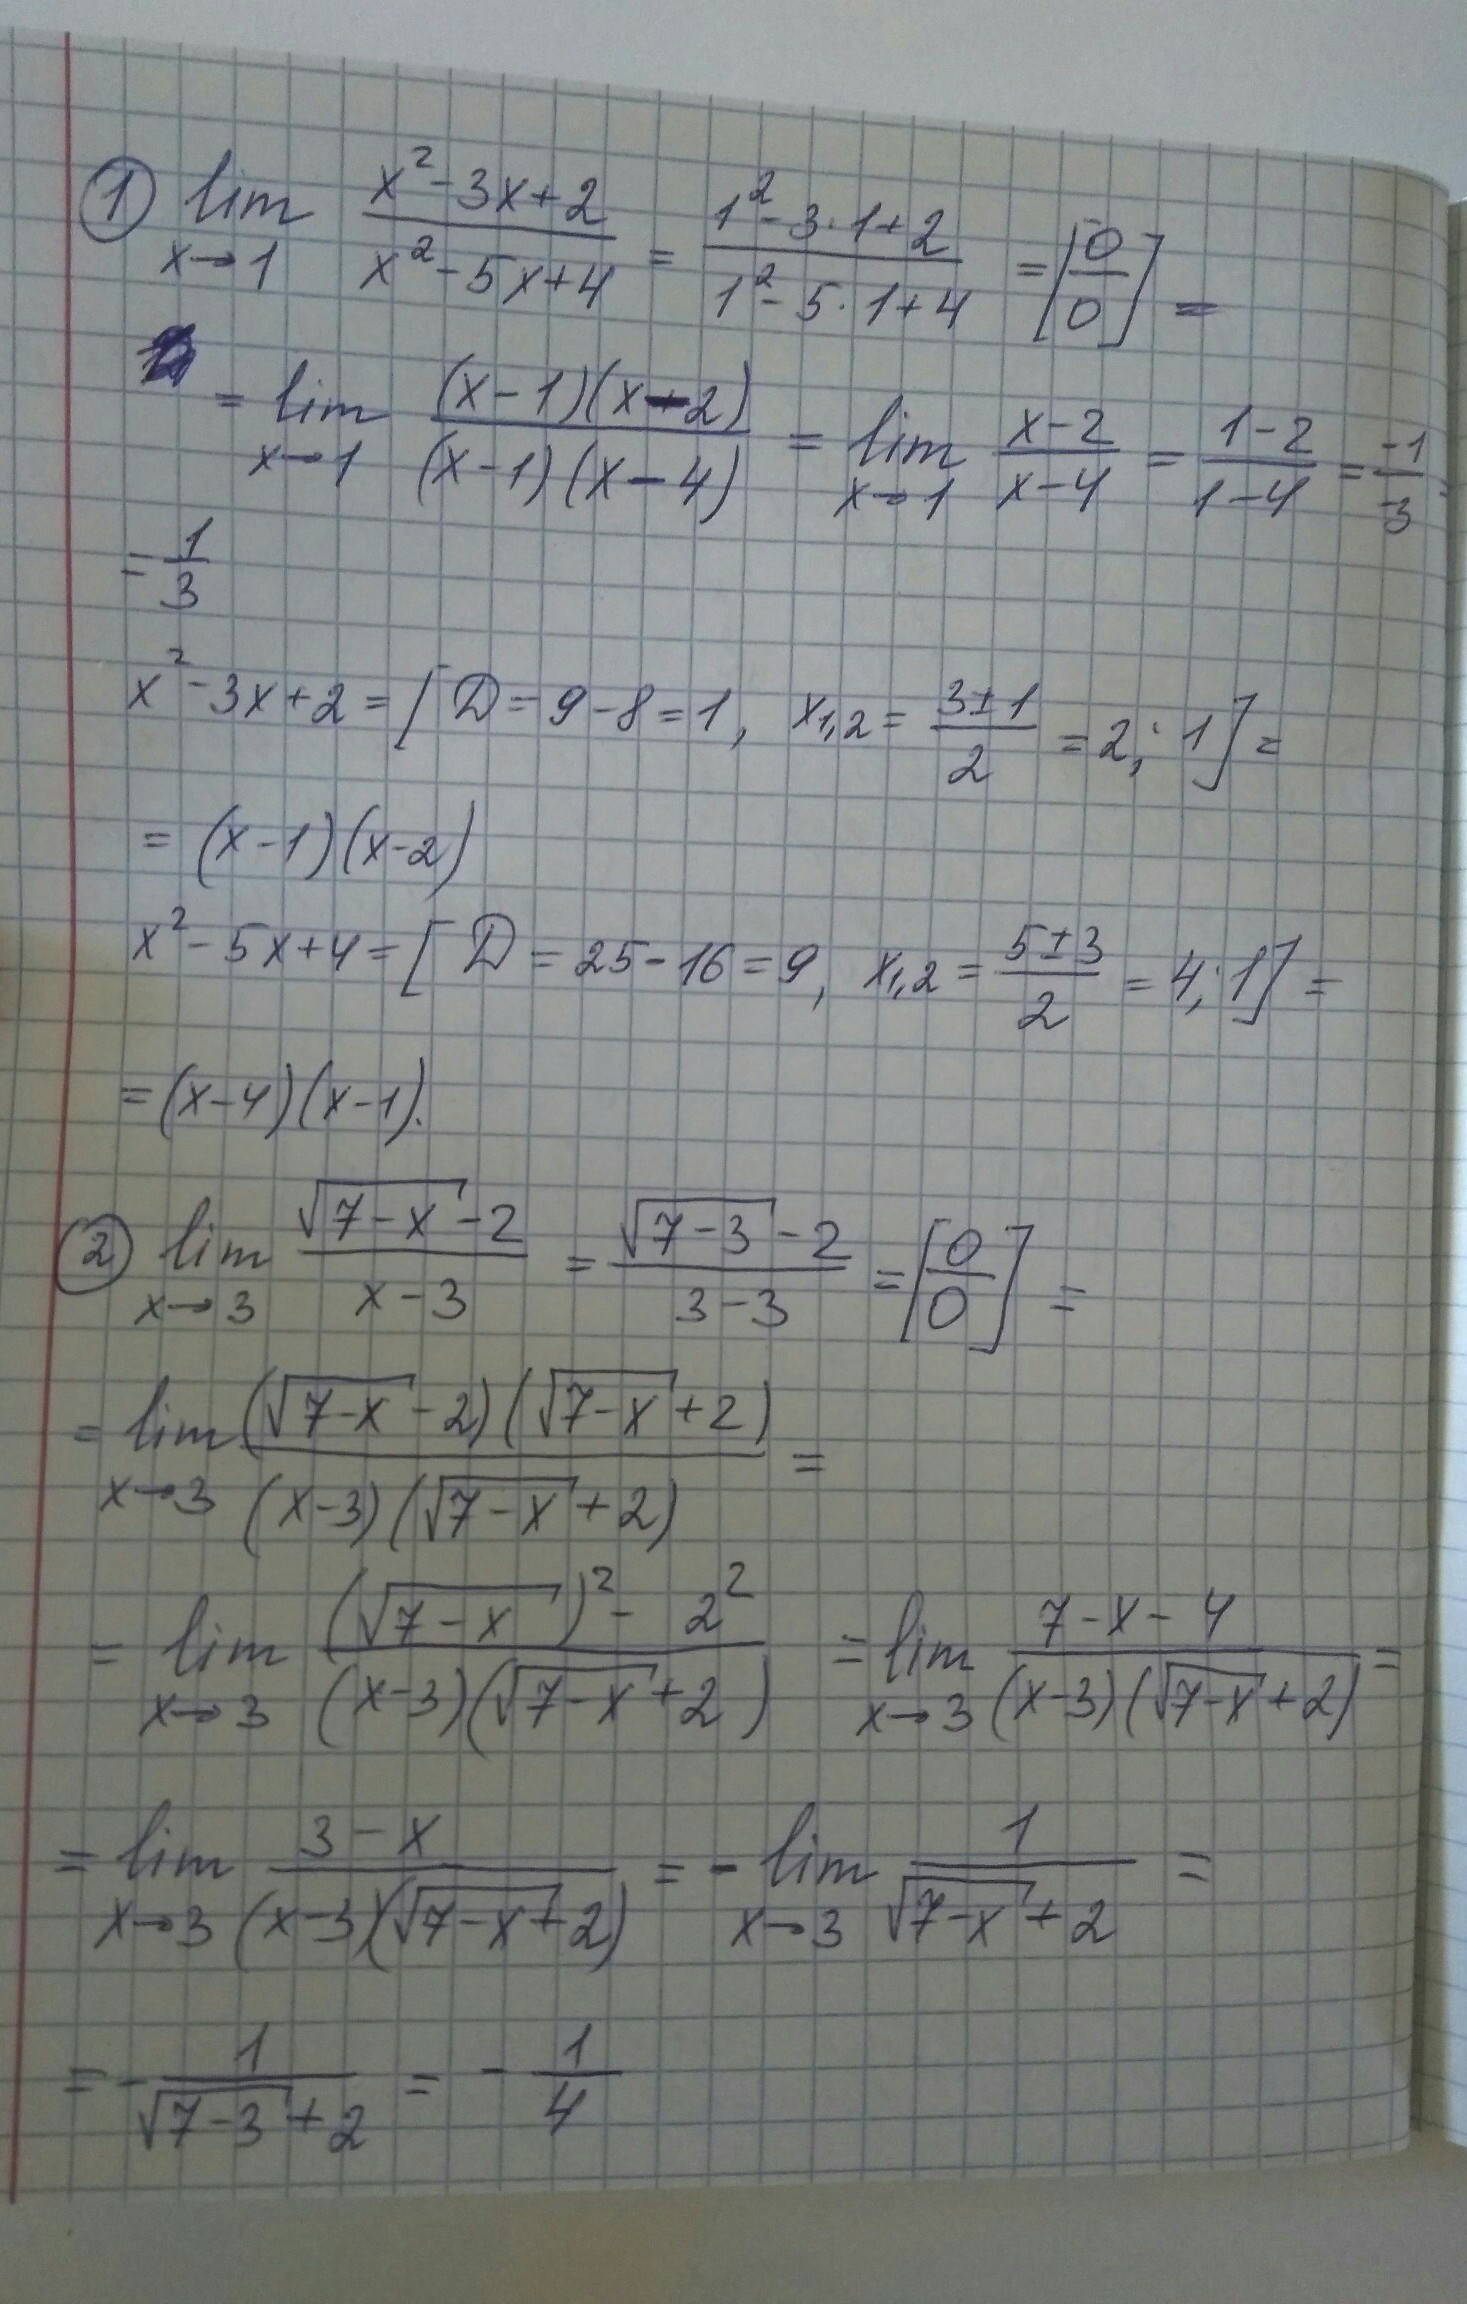 ① lim x→1 (x²-3x+2)/(x²-5x+4) = (1²-3·1+2)/(1²-5·1+4) = [0/0] =
= lim x→1 ((x-1)(x-2))/((x-1)(x-4)) = lim x→1 (x-2)/(x-4) = (1-2)/(1-4) = -1/-3
= 1/3
x²-3x+2 = [D = 9-8 = 1, x₁,₂ = (3±1)/2 = 2; 1] =
= (x-1)(x-2)
x²-5x+4 = [D = 25-16 = 9, x₁,₂ = (5±3)/2 = 4; 1] =
= (x-4)(x-1).
② lim x→3 (√(7-x) -2)/(x-3) = (√(7-3) -2)/(3-3) = [0/0] =
= lim x→3 ((√(7-x) -2)(√(7-x) +2))/((x-3)(√(7-x) +2)) =
= lim x→3 ((√(7-x))² - 2²)/((x-3)(√(7-x) +2)) = lim x→3 (7-x-4)/((x-3)(√(7-x) +2)) =
= lim x→3 (3-x)/((x-3)(√(7-x) +2)) = - lim x→3 1/(√(7-x) +2) =
= - 1/(√(7-3) +2) = - 1/4